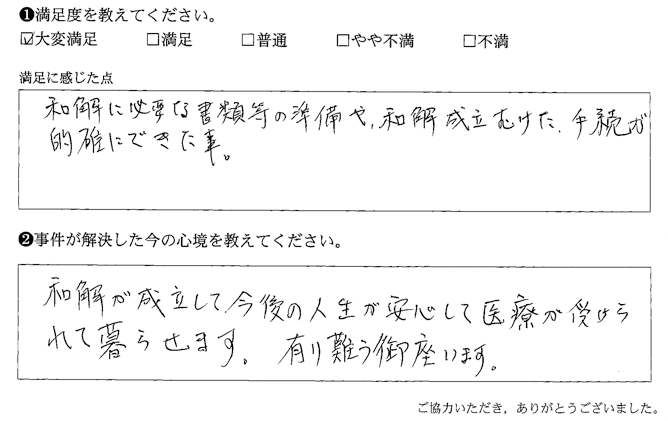 ❶満足度を教えてください。
☑大変満足 □満足 □普通 □やや不満 □不満
満足に感じた点
和解に必要な書類等の準備や,和解成立むけた、手続が
的確にできた事。
❷事件が解決した今の心境を教えてください。
和解が成立して、今後の人生が安心して医療が受けら
れて暮らせます。 有り難う御座います。
ご協力いただき，ありがとうございました。